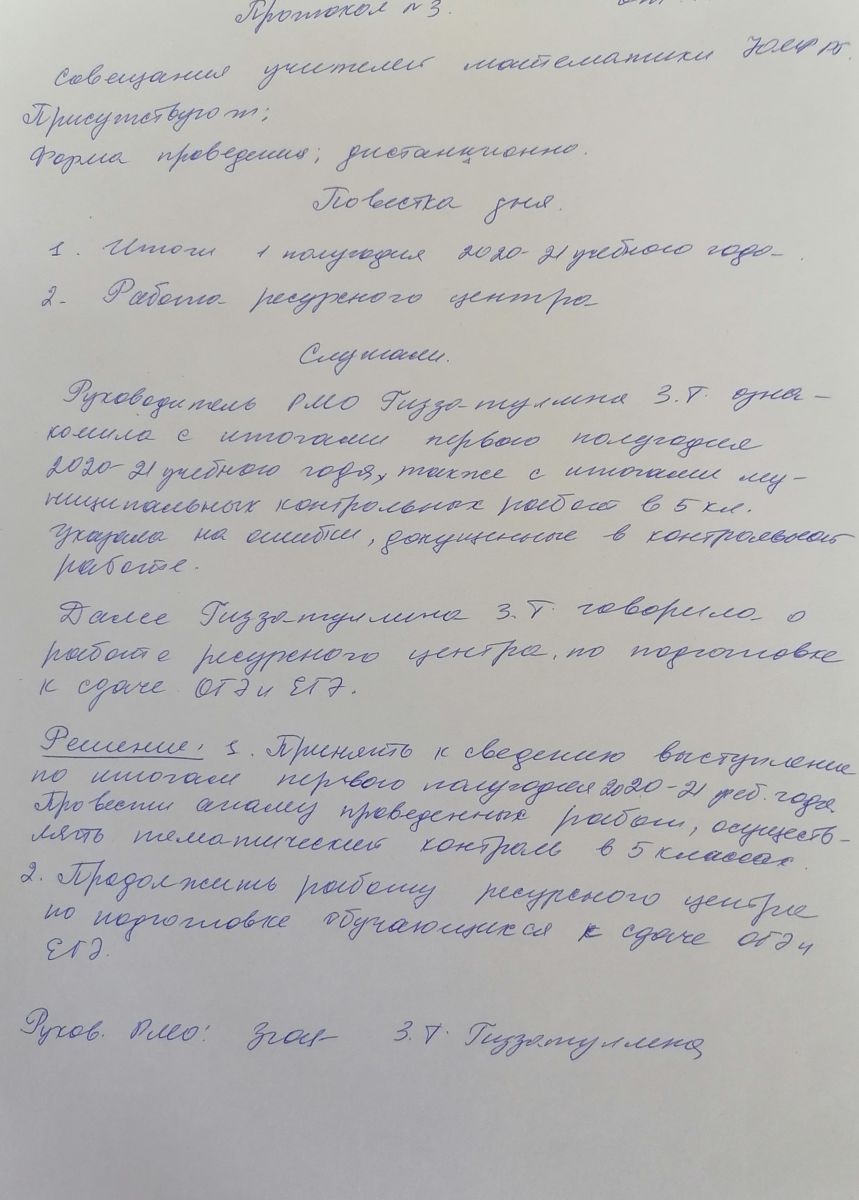 Протокол №3.
Совещания учителей математики
Присутствуют;
Форма проведения; дистанционно.
Повестка дня.
1. Итоги 1 полугодия 2020-21 учебного года.
2. Работа ресурсного центра
Слушали.
Руководитель РМО Гиззатуллина З.Т. озна-
комила с итогами первого полугодия
2020-21 учебного года, также с итогами му-
ниципальных контрольных работ в 5 кл.
Указала на ошибки, допущенные в контрольной
работе.
Далее Гиззатуллина З.Т. говорила о
работе ресурсного центра, по подготовке
к сдаче ОГЭ и ЕГЭ.
Решение: 1. Принять к сведению выступление
по итогам первого полугодия 2020-21 учеб. года.
Провести анализ проведенных работ, осуществ-
лять тематический контроль в 5 классах.
2. Продолжить работу ресурсного центра
по подготовке обучающихся к сдаче ОГЭ и
ЕГЭ.
Руков. РМО: З.Т. Гиззатуллина